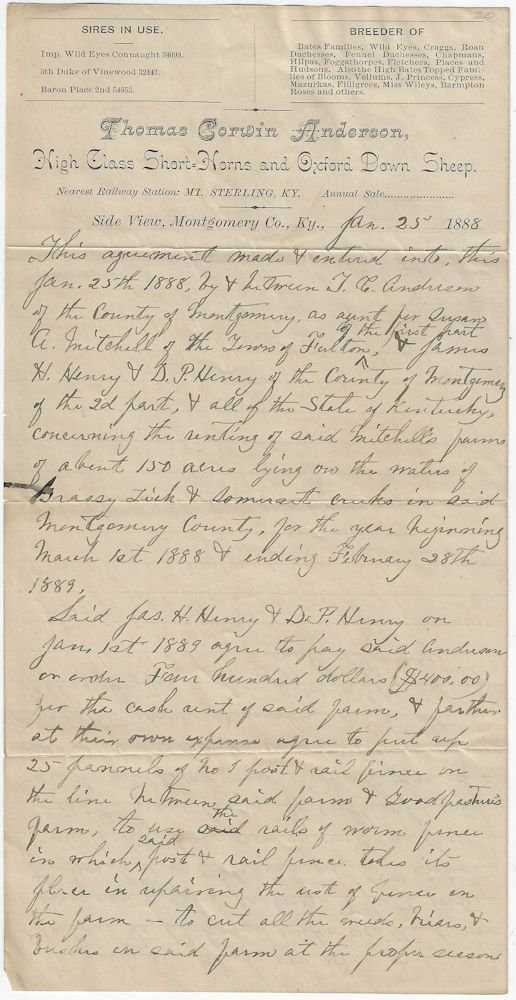 20
SIRES IN USE.
Imp. Wild Eyes Connaught 34099.
5th Duke of Vinewood 32443.
Baron Place 2nd 54653.
BREEDER OF
Bates Families, Wild Eyes, Craggs, Roan
Duchesses, Fennel Duchesses, Chapmans,
Hilpas, Foggathorpes, Fletchers, Places and
Hudsons. Also the High Bates Topped Fami-
lies of Blooms, Vellums, J. Princess, Cypress,
Mazurkas, Filligrees, Miss Wileys, Barmpton
Roses and others.
Thomas Corwin Anderson,
High Class Short-Horns and Oxford Down Sheep.
Nearest Railway Station: MT. STERLING, KY. Annual Sale......................
Side View, Montgomery Co., Ky., Jan. 25 1888
This agreement made & entered into, this
Jan. 25th 1888, by & between T. C. Anderson
of the County of Montgomery, as agent for Susan
A. Mitchell of the Town of Fulton, Mo of the first part & James
H. Henry & D. P. Henry of the County of Montgomery
of the 2d part, & all of the State of Kentucky,
concerning the renting of said Mitchell's farm
of about 150 acres lying on the waters of
Grassy Lick & Somerset creeks in said
Montgomery County, for the year beginning
March 1st 1888 & ending February 28th
1889,
Said Jas. H. Henry & D. P. Henry on
Jan. 1st 1889 agree to pay said Anderson
or order Four hundred dollars ($400.00)
for the cash rent of said farm, & farther
at their own expense agree to put up
25 pannels of No 1 post & rail fence on
the line between said farm & Goodpasture's
farm, to use the said rails of worm fence
in which said post & rail fence takes its
place in repairing the rest of fence on
the farm — to cut all the weeds, briars, &
bushes on said farm at the proper season